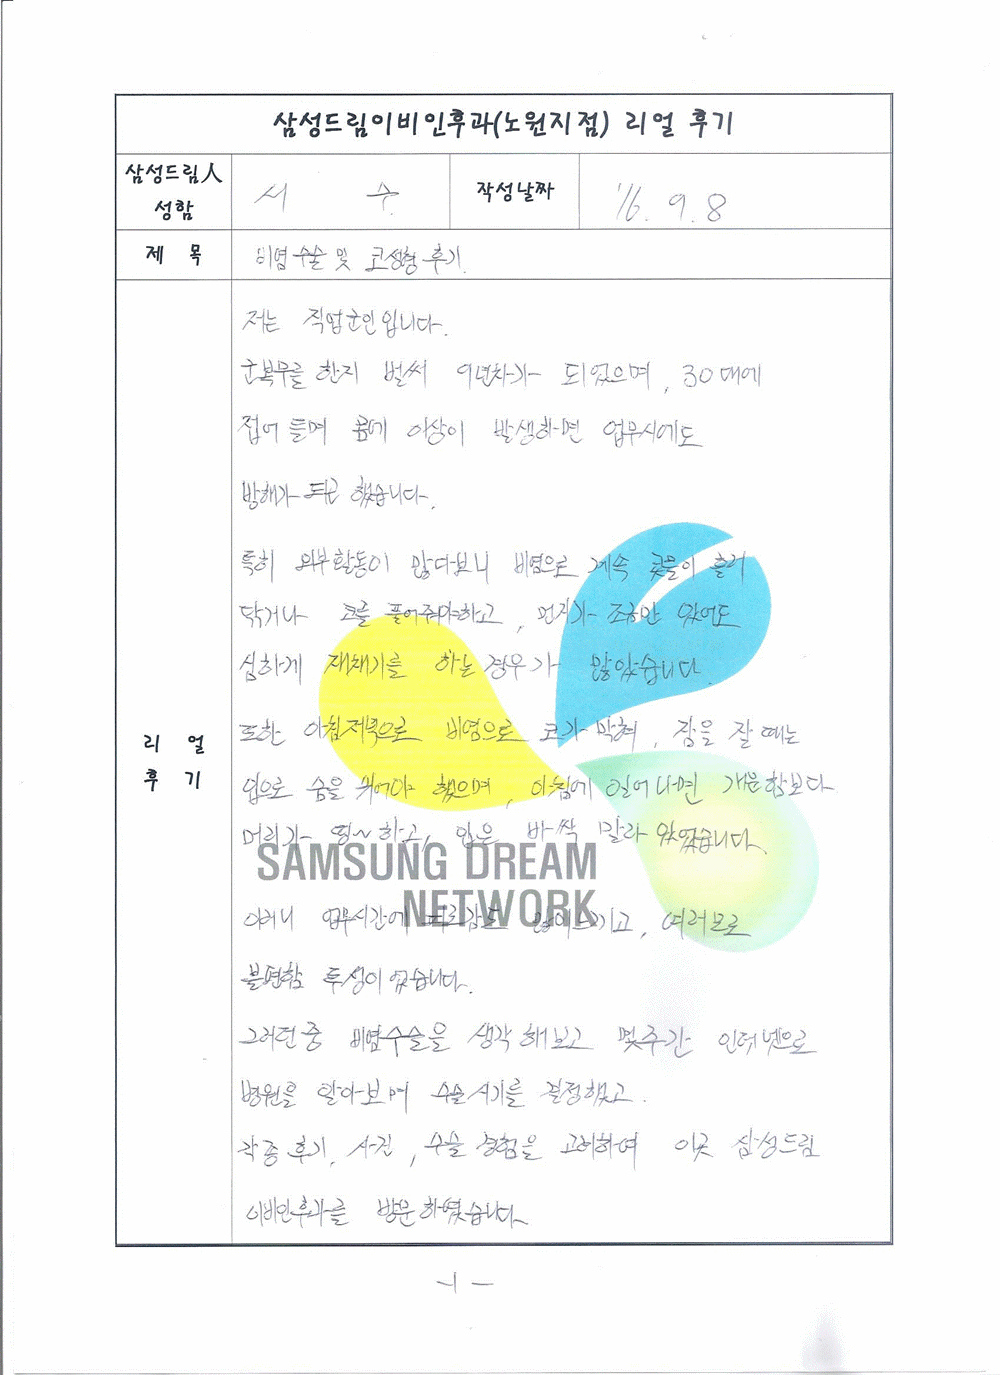 삼성드림이비인후과(노원지점) 리얼 후기
삼성드림人
성함
서 수
작성날짜
'16. 9. 8
제 목
비염수술 및 코성형 후기.
리 얼
후 기
저는 직업군인입니다.
군복무를 한지 벌써 9년차가 되었으며, 30대에
접어들며 몸에 이상이 발생하면 업무시에도
방해가 되곤 했습니다.
특히 외부활동이 많다보니 비염으로 계속 콧물이 흘러
닦거나 코를 풀어줘야하고, 먼지가 조금만 있어도
심하게 재채기를 하는 경우가 많았습니다.
또한 아침저녁으로 비염으로 코가 막혀, 잠을 잘 때는
입으로 숨을 쉬어야 했으며, 아침에 일어나면 개운함보다
머리가 띵~하고, 입은 바싹 말라 있었습니다.
SAMSUNG DREAM
NETWORK
이러니 업무시간에 피로감도 많이 느끼고, 여러모로
불편함 투성이였습니다.
그러던 중 비염수술을 생각해보고 몇주간 인터넷으로
병원을 알아보며 수술시기를 결정했고.
각종 후기, 사진, 수술 경험을 고려하여 이곳 삼성드림
이비인후과를 방문하였습니다.
-1-